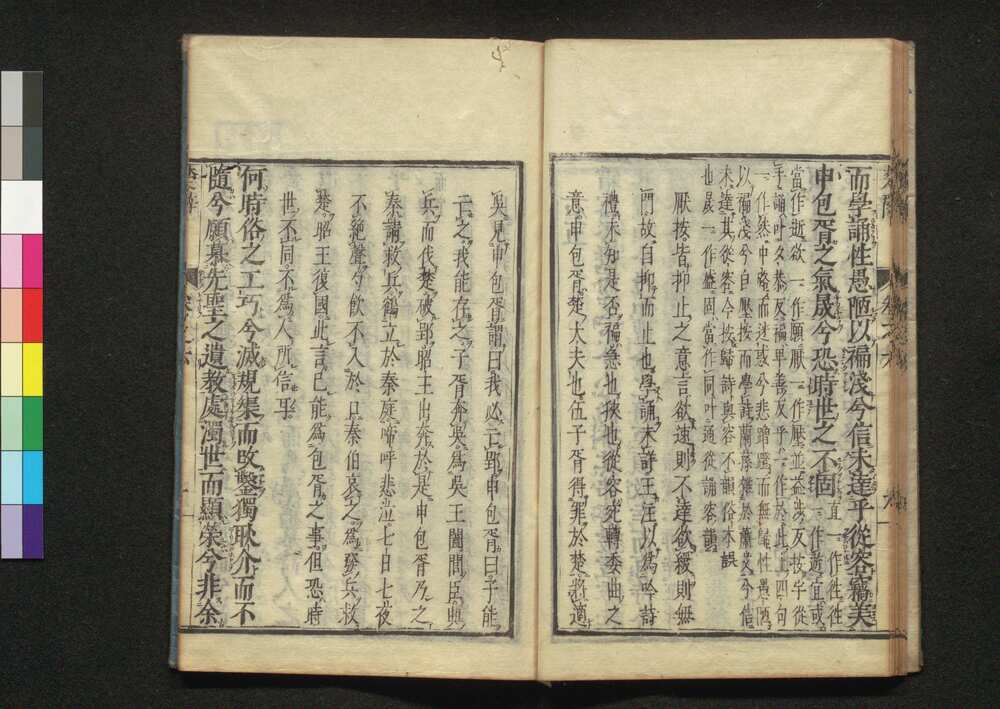 而學誦性愚陋以褊淺兮信未達乎從容竊美
申包胥之氣晟兮恐時世之不固
當作逝欲一作願厭一作壓並益涉反按乎從
手誦叶久恭反褊畢善反乎一作於此上四句
一作然中路而迷惑兮悲蹭蹬而無歸性愚陋
以褊淺兮自壓按而學詩蘭蓀雜於蕭艾兮信
未達其從容今按歸詩與容不韻俗本誤
也晟一作盛固當作同叶通從誦容韻
厭按皆抑止之意言欲速則不達欲緩則無
門故自抑而止也學誦未詳王注以爲吟詩
禮未知是否褊急也狹也從容宛轉委曲之
意申包胥楚大夫也伍子胥得罪於楚將適
吳見申包胥謂曰我必亡郢申包胥曰子能
亡之我能存之子胥奔吳爲吳王闔閭臣與
兵而伐楚破郢昭王出奔於是申包胥乃之
秦請救兵鶴立於秦庭啼呼悲泣七日七夜
不絕聲勺飮不入於口秦伯哀之爲發兵救
楚昭王復國此言已能爲包胥之事但恐時
世不同不爲人所信乎
何時俗之工巧兮滅規榘而改鑿獨耿介而不
隨兮願慕先聖之遺教處濁世而顯榮兮非余
楚辭 卷之六